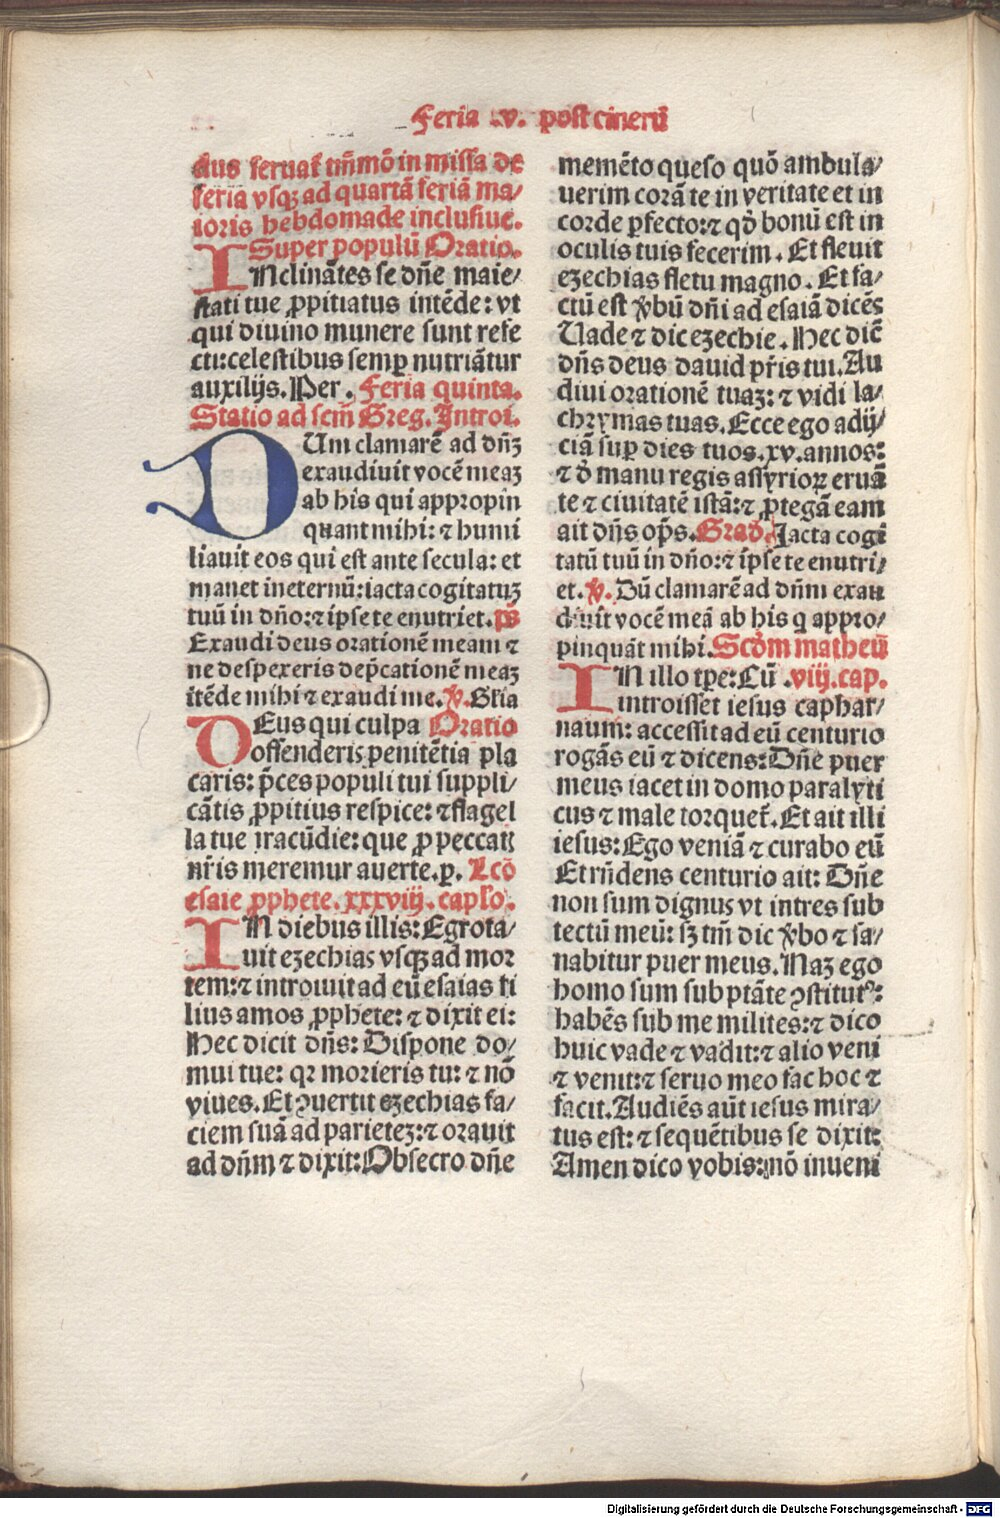 Feria .v. post cinerū
dus seruat̄ tm̄mō in missa de
feria vsq̄ ad quartā feriā ma/
ioris hebdomade inclusiue.
Super populū Oratio.
INclinātes se dn̄e maie/
stati tue ꝓpitiatus intēde: vt
qui diuino munere sunt refe
cti: celestibus semꝑ nutriātur
auxilijs. Per. Feria quinta.
Statio ad scm̄ Greg. Introi.
DUm clamarē ad dn̄ʒ
exaudiuit vocē meaʒ
ab his qui appropin
quant mihi: ⁊ humi
liauit eos qui est ante secula: et
manet ineternū: iacta cogitatuʒ
tuū in dn̄o: ⁊ ipse te enutriet. ps̄
Exaudi deus orationē meam ⁊
ne despexeris dep̄cationē meaʒ
itēde mihi ⁊ exaudi me. ℣. Glia
DEus qui culpa Oratio
offenderis penitētia pla
caris: p̄ces populi tui suppli/
cātis ꝓpitius respice: ⁊ flagel
la tue iracūdie: que ꝓ peccatꝭ
nr̄is meremur auerte. p. Lcō
esaie ꝓphete. xxxviij. caplo.
IN diebus illis: Egrota/
uit ezechias vsqʒ ad mor
tem: ⁊ introiuit ad eū esaias fi
lius amos ꝓphete: ⁊ dixit ei:
Hec dicit dn̄s: Dispone do/
mui tue: qꝛ morieris tu: ⁊ nō
viues. Et ꝯuertit ezechias fa/
ciem suā ad parieteʒ: ⁊ orauit
ad dn̄m ⁊ dixit: Obsecro dn̄e
memēto queso quō ambula/
uerim corā te in veritate et in
corde ꝑfecto: ⁊ qd̄ bonū est in
oculis tuis fecerim. Et fleuit
ezechias fletu magno. Et fa/
ctū est ꝟbū dn̄i ad esaiā dicēs
Uade ⁊ dic ezechie. Hec dic̄
dn̄s deus dauid pr̄is tui. Au
diui orationē tuaʒ: ⁊ vidi la/
chrymas tuas. Ecce ego adij/
ciā suꝑ dies tuos .xv. annos:
⁊ d̄ manu regis assyrioꝝ eruā
te ⁊ ciuitatē istā: ⁊ ꝓtegā eam
ait dn̄s op̄s. Grad̄. Iacta cogi
tatū tuū in dn̄o: ⁊ ipse te enutri/
et. ℣. Dū clamarē ad dn̄m exau
diuit vocē meā ab his q appro/
pinquāt mihi. Scd̄m matheū
IN illo tꝑe: Cū .viij. cap.
introisset iesus caphar/
naum: accessit ad eū centurio
rogās eū ⁊ dicens: Dn̄e puer
meus iacet in domo paralyti
cus ⁊ male torquet̄. Et ait illi
iesus: Ego veniā ⁊ curabo eū
Et rn̄dens centurio ait: Dn̄e
non sum dignus vt intres sub
tectū meū: sʒ tm̄ dic ꝟbo ⁊ sa/
nabitur puer meus. Naʒ ego
homo sum sub ptāte ꝯstitutꝰ:
habēs sub me milites: ⁊ dico
huic vade ⁊ vadit: ⁊ alio veni
⁊ venit: ⁊ seruo meo fac hoc ⁊
facit. Audiēs aūt iesus mira/
tus est: ⁊ sequētibus se dixit:
Amen dico vobis: nō inueni
Digitalisierung gefördert durch die Deutsche Forschungsgemeinschaft - DFG